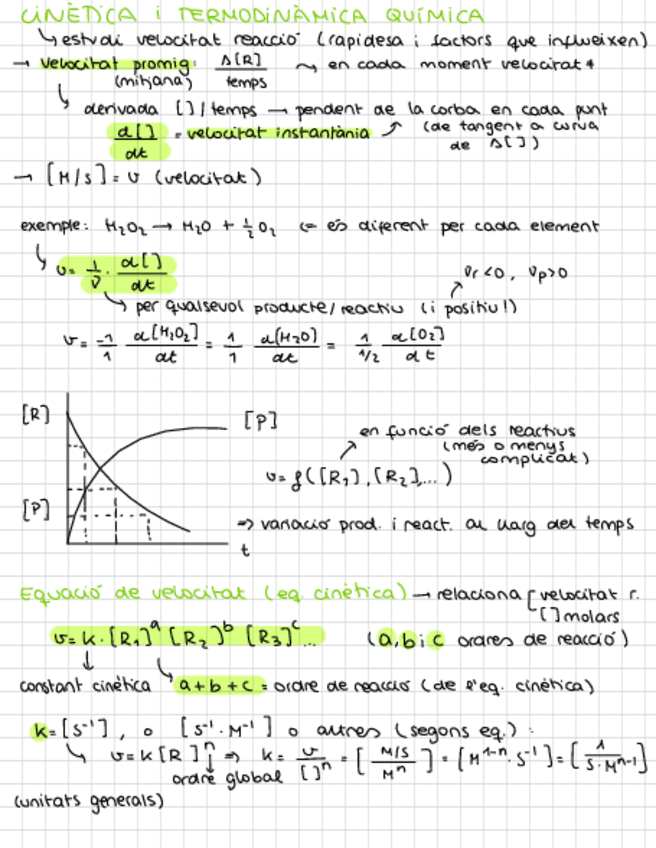 CINÈTICA i TERMODINÀMICA QUÍMICA
↳ estudi velocitat reacció (rapidesa i factors que influeixen)
→ velocitat promig: Δ[R] / temps ⤳ en cada moment velocitat ≠
(mitjana)
↳ derivada []/temps → pendent de la corba en cada punt
d[]/dt = velocitat instantània ↗ (de tangent a curva
de Δ[])
→ [M/s] = v (velocitat)
exemple: H₂O₂ → H₂O + ½ O₂ ← és diferent per cada element
↳ v = 1/ν · d[]/dt
vr<0, vp>0
↳ per qualsevol producte/reactiu (i positiu!)
v = -1/1 d[H₂O₂]/dt = 1/1 d[H₂O]/dt = 1/1/2 d[O₂]/dt
[R]
[P]
en funció dels reactius
(més o menys
complicat)
v = f([R₁], [R₂],...)
[P]
⇒ variació prod. i react. al llarg del temps
t
Equació de velocitat (eq. cinètica) → relaciona [velocitat r.
[] molars
v = k · [R₁]ᵃ [R₂]ᵇ [R₃]ᶜ... (a, b i c ordres de reacció)
↓
constant cinètica ↳ a + b + c = ordre de reacció (de l'eq. cinètica)
k = [s⁻¹], o [s⁻¹ · M⁻¹] o altres (segons eq.):
↳ v = k [R]ⁿ ⇒ k = v/[]ⁿ = [M/s / Mⁿ] = [M¹⁻ⁿ · s⁻¹] = [1 / s · Mⁿ⁻¹]
ordre global
(unitats generals)